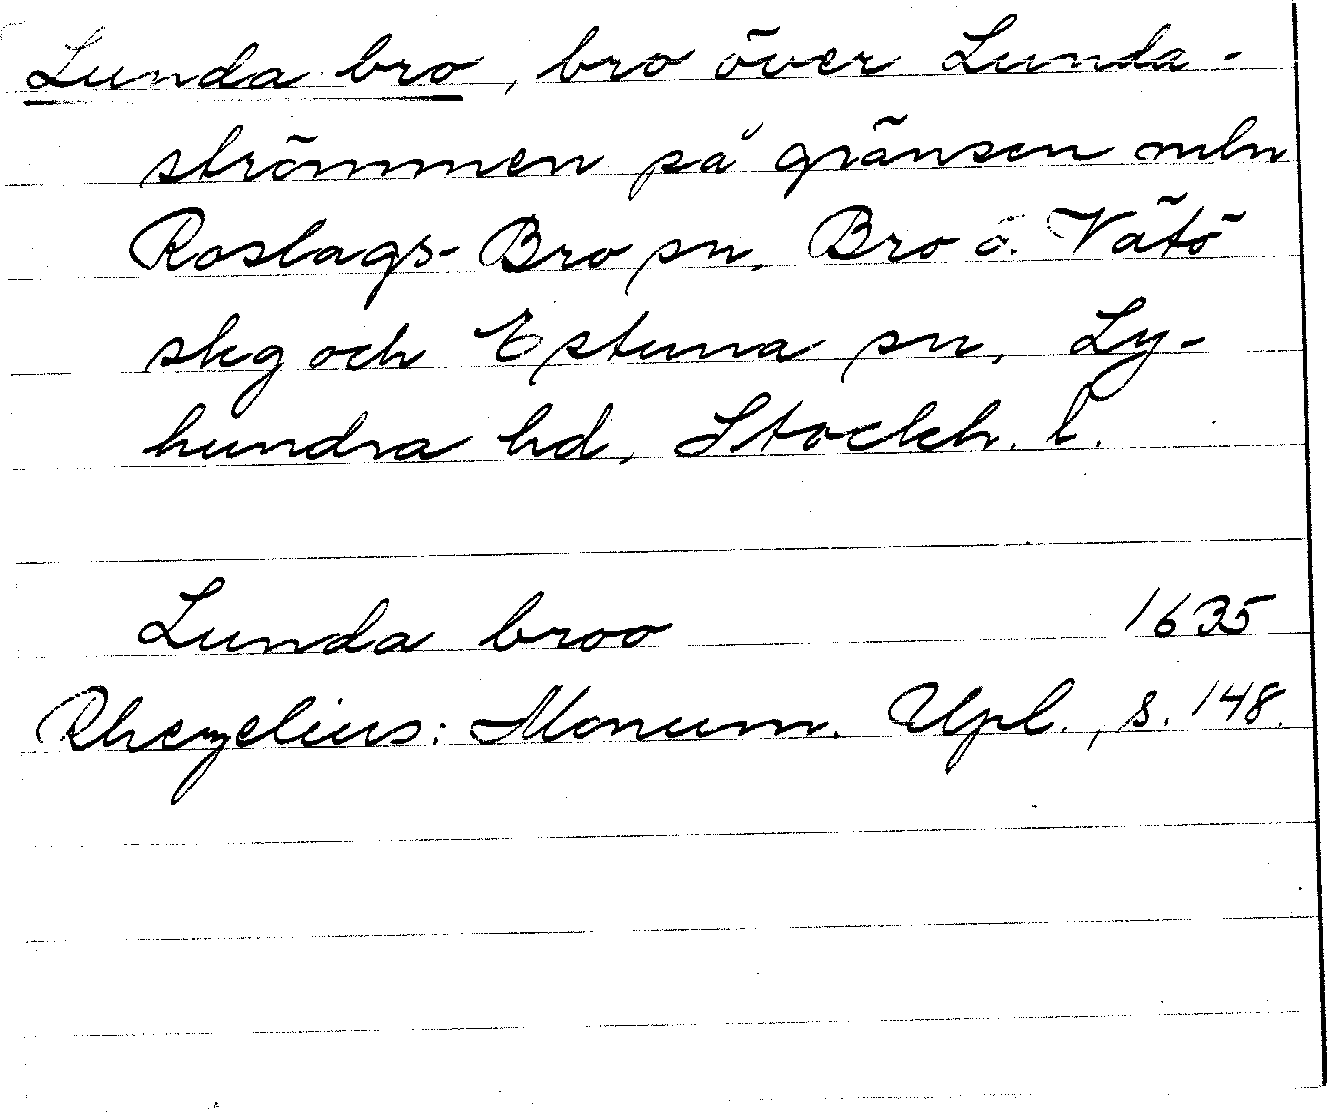 Lunda bro, bro över Lunda-
strömmen på gränsen mln
Roslags-Bro sn, Bro o. Vätö
skg och Estuna sn, Ly-
hundra hd, Stockh. l.
Lunda broo 1635
Rhezelius: Monum. Upl., s. 148.